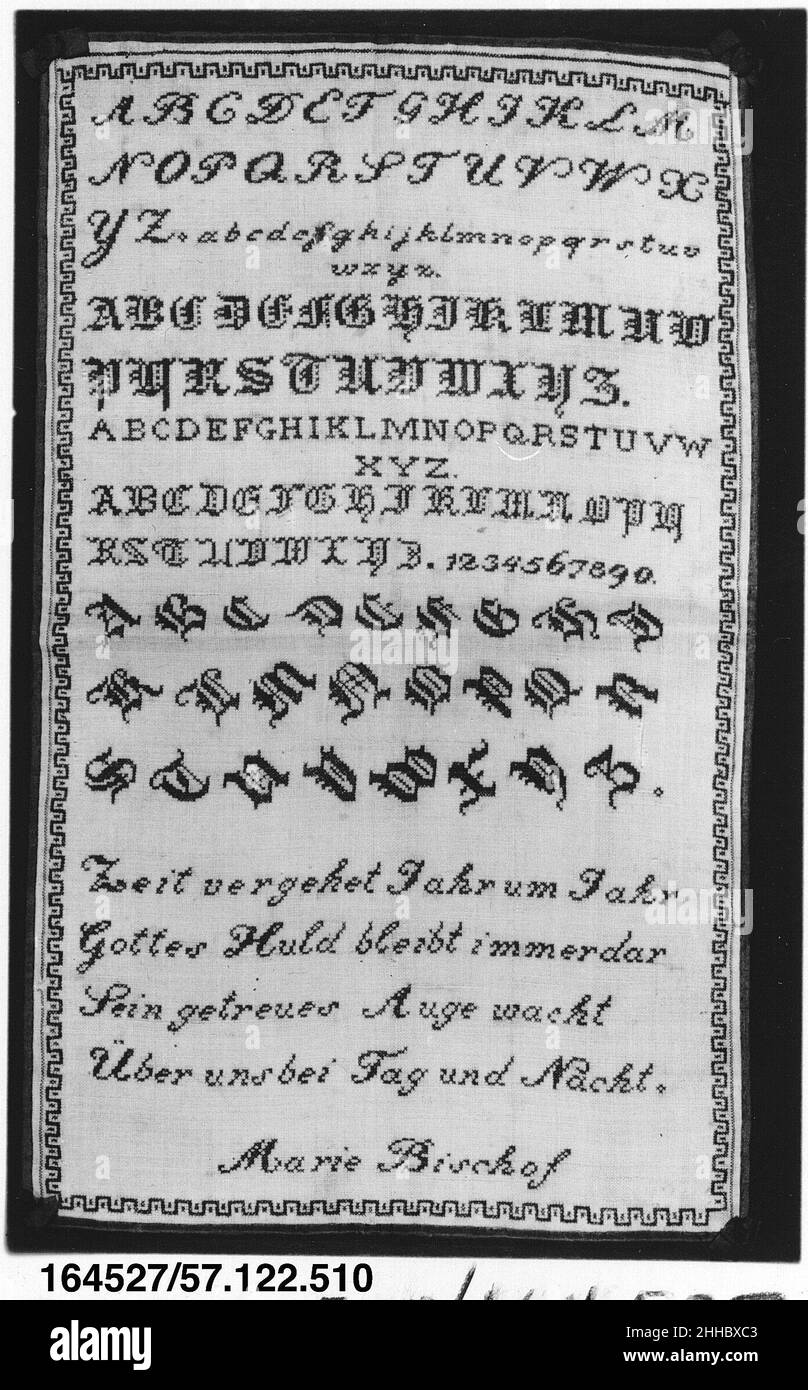 A B C D E F G H I K L M
N O P Q R S T U V W X
Y Z. a b c d e f g h i j k l m n o p q r s t u v
w x y z.
A B C D E F G H I K L M N O
P Q R S T U V W X Y Z.
A B C D E F G H I K L M N O P Q R S T U V W
X Y Z.
A B C D E F G H I K L M N O P Q
R S T U V W X Y Z. 1 2 3 4 5 6 7 8 9 0.
A B C D E F G H I
K L M N O P Q R
S T U V W X Y Z.
Zeit vergehet Jahr um Jahr
Gottes Huld bleibt immerdar
Sein getreues Auge wacht
Über uns bei Tag und Nacht.
Marie Bischof
164527/57.122.510
alamy
Image ID: 2HHBXC3
www.alamy.com